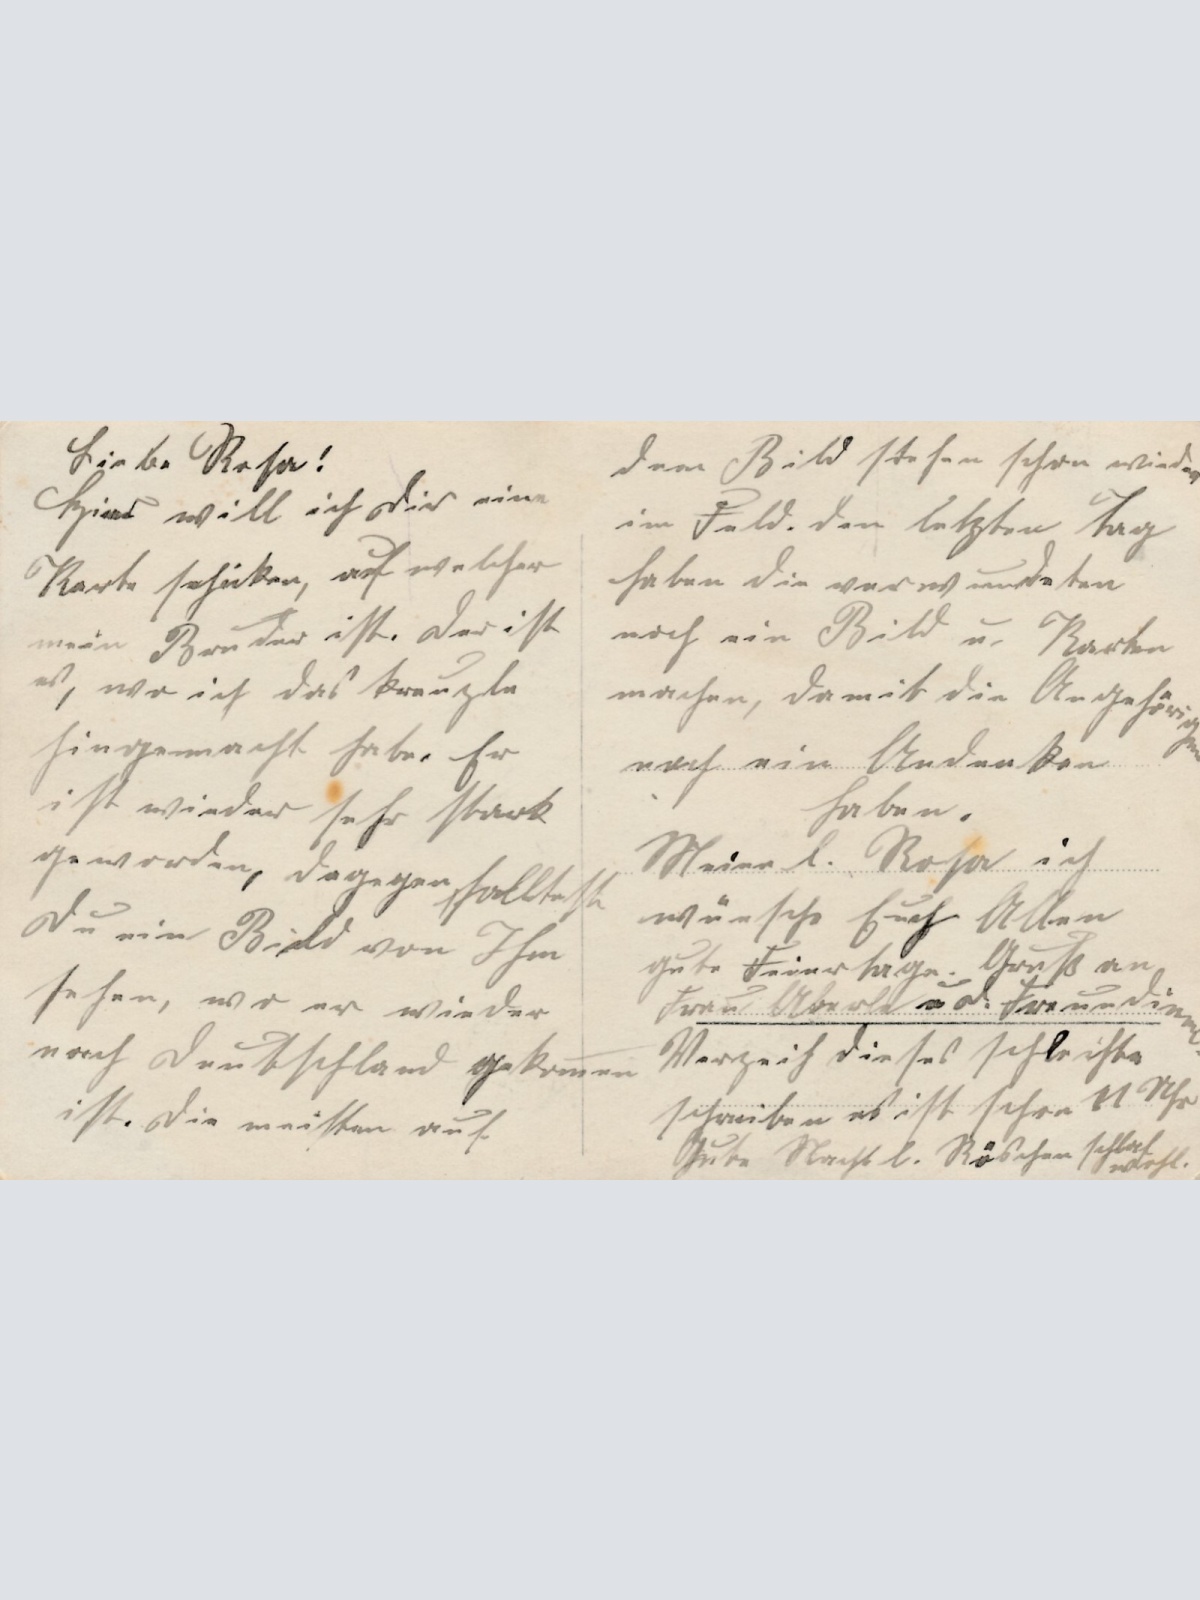 Liebe Rosa!
Hier will ich Dir eine
Karte schicken, auf welcher
mein Bruder ist. Der ist
es, wo ich das kreuzle
hingemacht habe. Er
ist wieder sehr stark
geworden, dagegen solltest
Du ein Bild von Ihm
sehen, wo er wieder
nach Deutschland gekommen
ist. Die meisten auf
dem Bild stehen schon wieder
im Feld. den letzten Tag
haben die verwundeten
noch ein Bild u. Karten
machen, damit die Angehörigen
noch ein Andenken
haben.
Meine l. Rosa ich
wünsche Euch Allen
gute Feiertage. Gruß an
Frau Aberle u. d. Freundinen.
Verzeih dieses schlechte
schreiben es ist schon 11 Uhr
Gute Nacht l. Röschen schlaf
wohl.